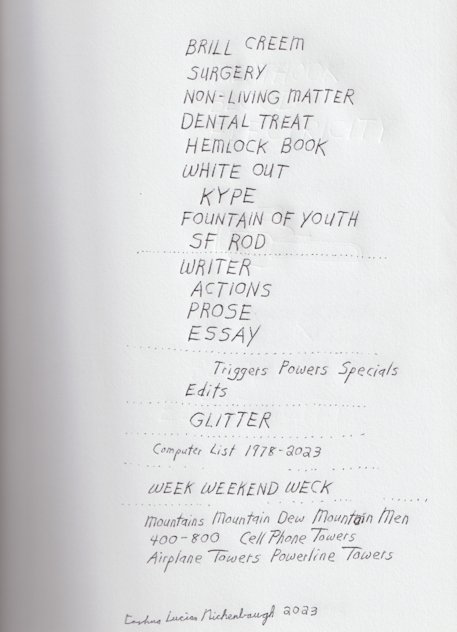 BRILL CREEM
SURGERY
NON-LIVING MATTER
DENTAL TREAT
HEMLOCK BOOK
WHITE OUT
KYPE
FOUNTAIN OF YOUTH
SF ROD
WRITER
ACTIONS
PROSE
ESSAY
Triggers Powers Specials
Edits
GLITTER
Computer List 1978-2023
WEEK WEEKEND WECK
Mountains Mountain Dew Mountain Men
400-800 Cell Phone Towers
Airplane Towers Powerline Towers
Lucias 2023